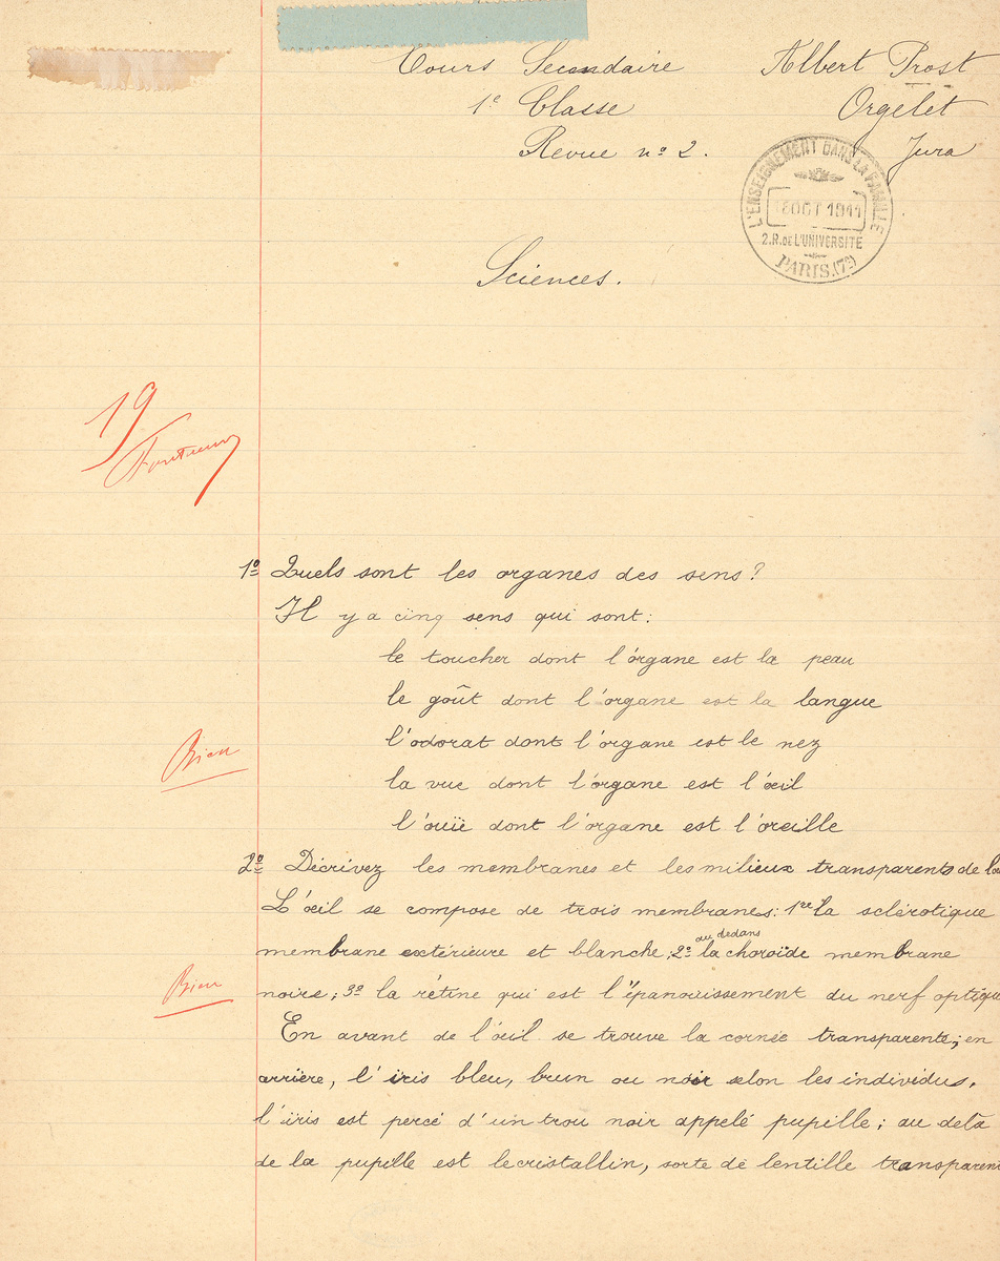 Cours Secondaire
1e Classe
Revue no 2.
Albert Prost
Orgelet
Jura
L'ENSEIGNEMENT DANS LA FAMILLE
OCT 1911
2.R.DE L'UNIVERSITÉ
PARIS.(7e)
Sciences.
19
1o Quels sont les organes des sens?
Il y a cinq sens qui sont:
le toucher dont l'organe est la peau
le goût dont l'organe est la langue
l'odorat dont l'organe est le nez
Bien
la vue dont l'organe est l'œil
l'ouïe dont l'organe est l'oreille
2o Décrivez les membranes et les milieux transparents de
L'œil se compose de trois membranes: 1re la sclérotique
membrane extérieure et blanche; 2o la choroïde au dedans membrane
Bien
noire; 3o la rétine qui est l'épanouissement du nerf optiqu
En avant de l'œil se trouve la cornée transparente; en
arrière, l'iris bleu, brun ou noir selon les individus.
l'iris est percé d'un trou noir appelé pupille; au delà
de la pupille est le cristallin, sorte de lentille transparen